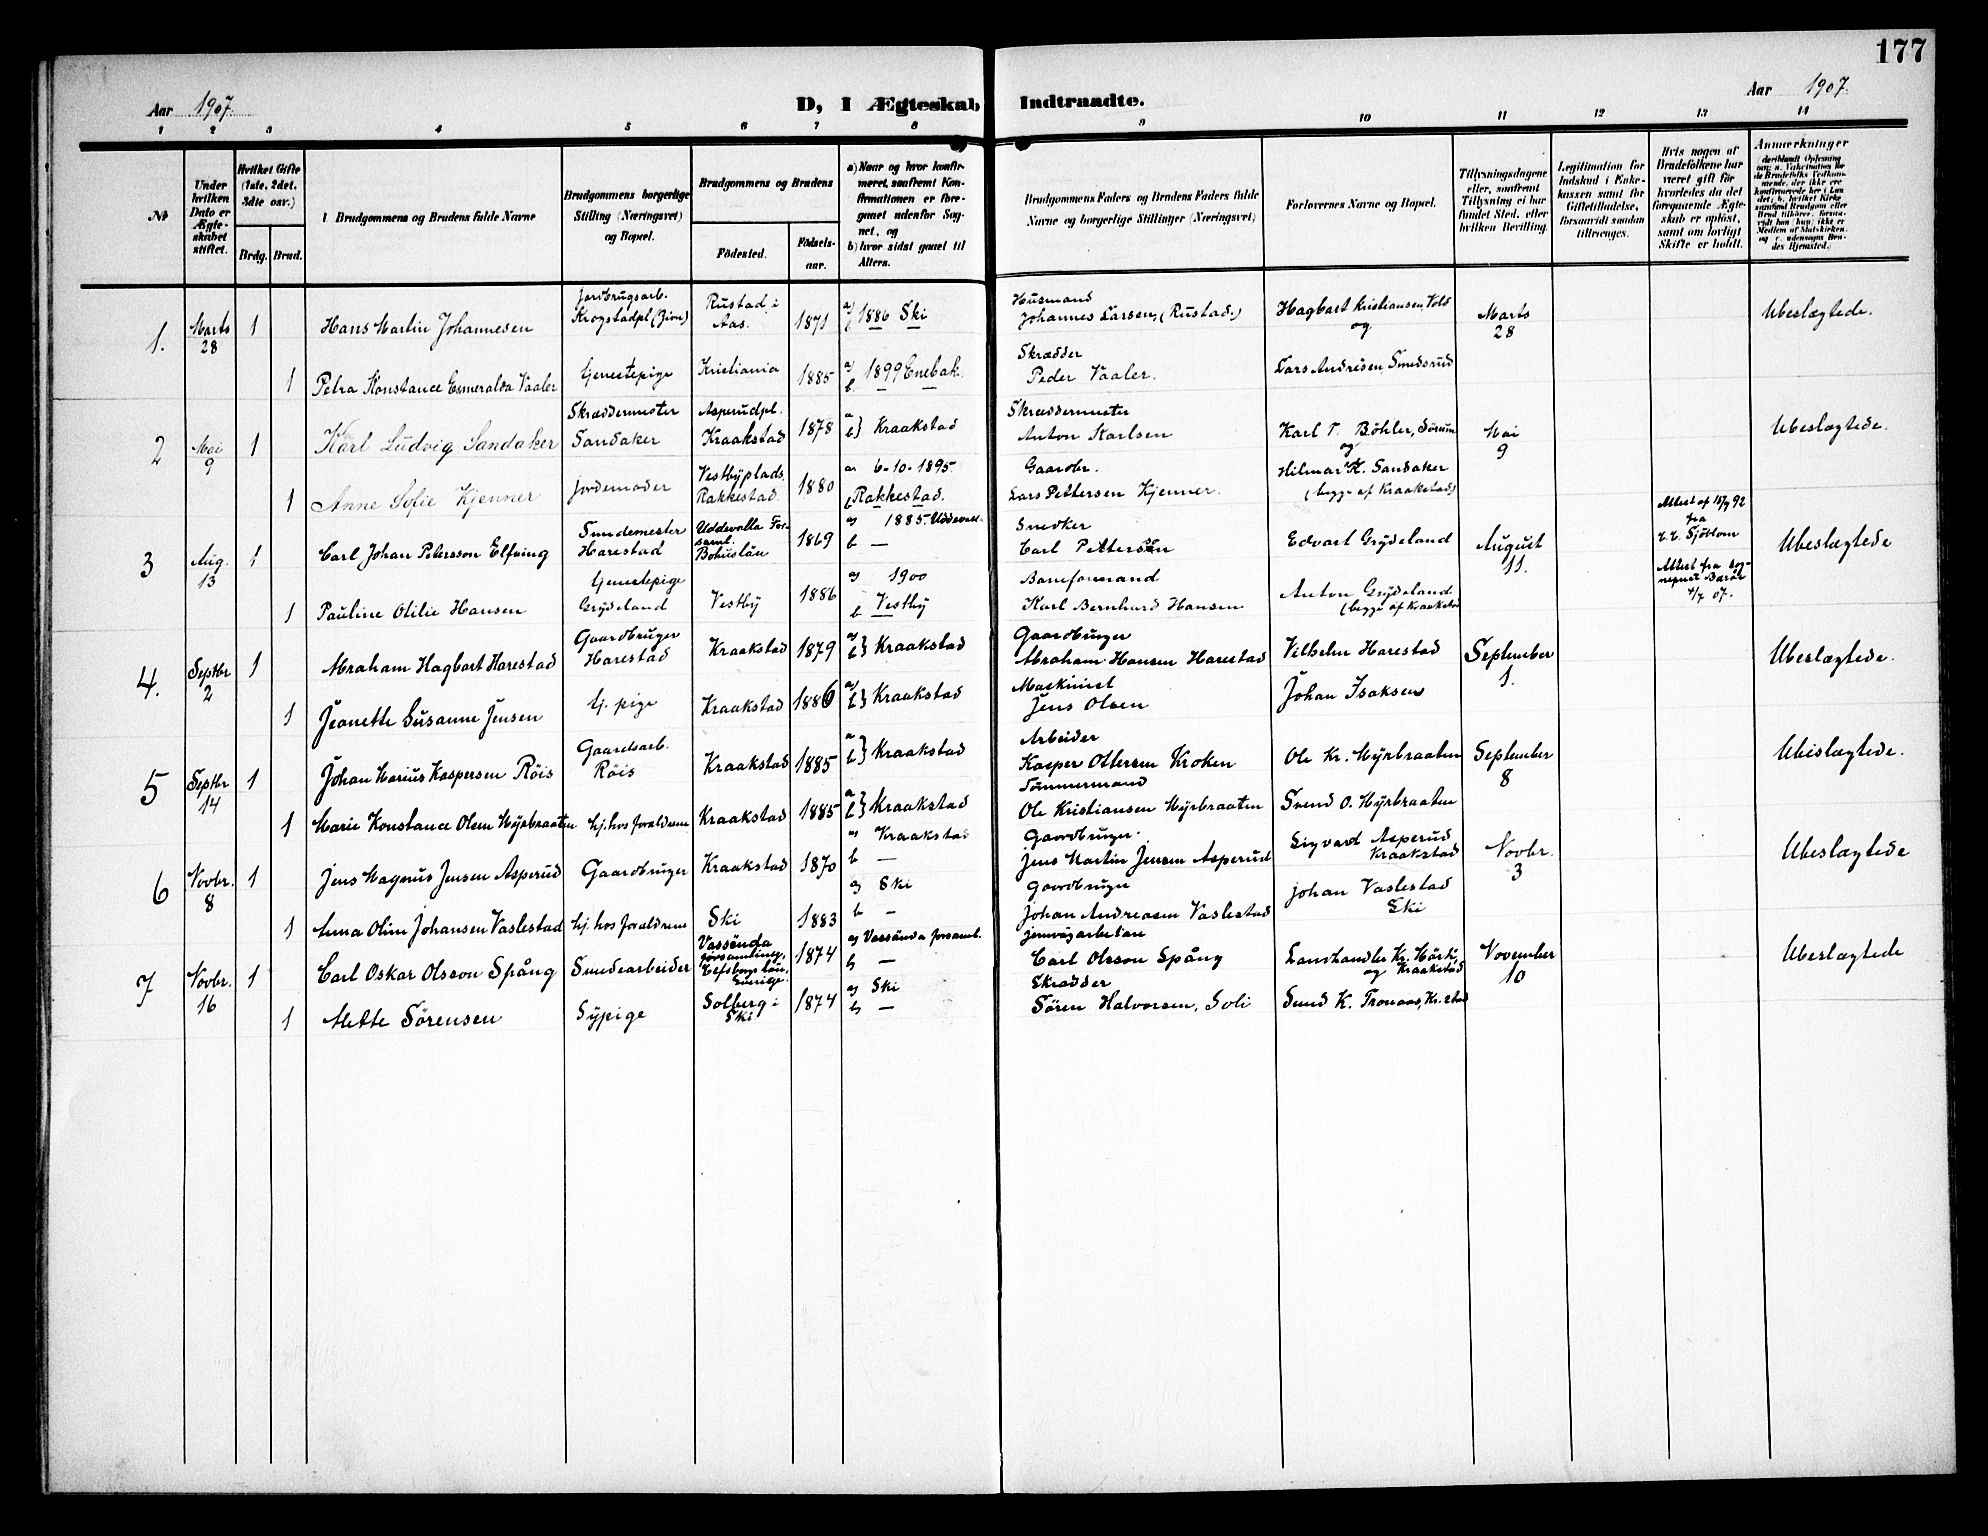 177
Aar 1907.
D, I Ægteskab Indtraadte.
Aar 1907.
1 2 3 4 5 6 7 8 9 10 11 12 13 14
№
Under hvilken Dato er Ægteskabet stiftet.
Hvilket Gifte (1ste, 2det, 3die osv.)
Brdg. Brud.
Brudgommens og Brudens fulde Navne
Brudgommens borgerlige Stilling (Næringsvei) og Bopæl.
Brudgommens og Brudens
Födested.
Födselsaar.
a) Naar og hvor konfirmeret, saafremt Konfirmationen er foregaaet udenfor Sognet, og
b) hvor sidst gaaet til Alters.
Brudgommens Faders og Brudens Faders fulde Navne og borgerlige Stillinger (Næringsvei)
Forlovernes Navne og Bopæl.
Tillysningsdagene eller, saafremt Tillysning ei har fundet Sted, efter hvilken Bevilling.
Legitimation for Indskud i Enkekassen samt for Giftetilladelse, forsaavidt saadan tiltrænges.
Hvis nogen af Brudefolkene har været gift för hvorledes da det foregaaende Ægteskab er oplöst, samt om lovligt Skifte er holdt.
Anmærkninger
1. Marts 28 1 Hans Martin Johannesen
Jordbrugsarb. Krogstadpl (Zion)
Rustad i Aas. 1871 a) b) 1886 Ski
Husmand Johannes Larsen, (Rustad.)
Hagbart Kristiansen, Vold og
Marts 28
Ubeslægtede.
1 Petra Konstance Esmeralda Vaaler
Tjenestepige Kristiania 1885 a) 1899 Enebak. b –
Skrædder Peder Vaaler.
Lars Andrésen Smedsrud
2 Mai 9 1 Karl Ludvig Sandaker
Skræddermester Sandaker
Asperudpl. Kraakstad 1878 a b} Kraakstad
Skræddermester Anton Karlsen
Karl T. Böhler, Sørum og
Mai 9
Ubeslægtede.
1 Anne Sofie Kjenner
Jordemoder Vestbyplads, Rakkestad. 1880 a 6-10-1895 b Rakkestad.
Gaardbr. Lars Pettersen Kjenner.
Hilmar K. Sandaker (begge af Kraakstad)
3 Aug. 13 1 Carl Johan Petersson Elfving
Smedemester Harestad
Uddevalla Forsaml. Bohuslän 1869 a) 1885. Uddevall- b –
Snedker Carl Pettersén
Edvart Grydeland
August 11.
Attest af 15/9 92 fra C. C. Sjöblom
Ubeslægtede
1 Pauline Otilie Hansen
Tjenestepige Grydeland Vestby 1886 a) 1900 b Vestby
Baneformand Karl Bernhard Hansen
Anton Grydeland (begge af Kraakstad
Attest fra sognepræst 4/7 07.
4. Septbr 2 1 Abraham Hagbart Harestad
Gaardbruger Harestad Kraakstad 1879 a) b} Kraakstad
Gaardbruger Abraham Hansen Harestad
Vilhelm Harestad
September 1.
Ubeslægtede.
1 Jeanette Susanne Jensen
tj. pige Kraakstad 1886 a) b} Kraakstad
Maskinist Jens Olsen
Johan Isaksen
5 Septbr 14 1 Johan Marius Kaspersen Röis
Gaardsarb. Röis Kraakstad 1885 a b} Kraakstad
Arbeider Kasper Ottersen Kroken
Ole Kr. Myrbraaten
September 8
Ubeslægtede.
1 Marie Konstance Olsen Myrbraaten
hj. hos forældrene Kraakstad 1885 a b} Kraakstad
Tømmermand Ole Kristiansen Myrbraaten
Svend O. Myrbraaten
6 Novbr. 8 1 Jens Magnus Jensen Asperud
Gaardbruger Kraakstad 1870 a) Kraakstad b –
Gaardbruger. Jens Martin Jensen Asperud
Sigvard Asperud Kraakstad
Novbr. 3
Ubeslægtede
1 Anna Oline Johansen Vaslestad
hj. hos forældrene Ski 1883 a) Ski b –
Gaardbruger Johan Andreasen Vaslestad
Johan Vaslestad Ski
7 Novbr. 16 1 Carl Oskar Olsson Spång
Smedearbeider Vassända församling, Elfsborgs län, Sverige. 1874 a) Vassända församl. b –
Jernvägarbetare Carl Olsson Spång
Landhandler Kr. Mørk, og Kraakstad
November 10
Ubeslægtede
1 Mette Sörensen
Sypige Solberg i Ski 1874 a) Ski b –
Skrædder Sören Halvorsen, Soli
Svend K. Tronaas, Kr.stad